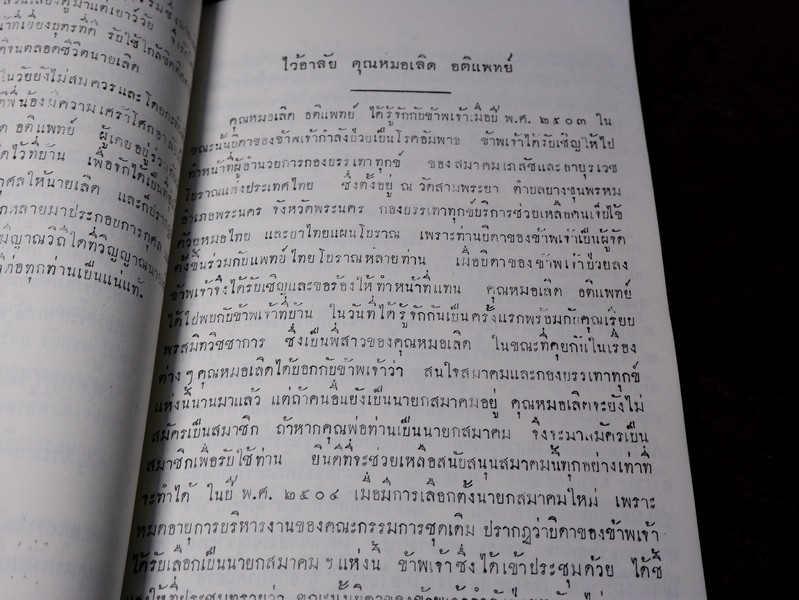 น้าที่เยี่ยงบุตรที่ดี รับใช้ใกล้ชิดติด
ดีจนตลอดชีวิตนายเลิด
ในวัยยังไม่สมควร และโดยกะทัน
ที่พี่น้องมีความเศร้าโศกอาลัย
ด อติแพทย์ ผู้เคยอยู่ร่วม
ดไว้ที่บ้าน เพื่อจักได้เป็นที่
กุศลให้นายเลิด และก็ปรา
กหลายมาประกอบการกุศล
มีญาณวิถีใดที่วิญญาณนาย
ดีต่อทุกท่านเป็นแน่แท้.
ไว้อาลัย คุณหมอเลิด อติแพทย์
คุณหมอเลิด อติแพทย์ ได้รู้จักกับข้าพเจ้าเมื่อปี พ.ศ. ๒๕๐๓ ใน
ขณะนั้นบิดาของข้าพเจ้ากำลังป่วยเป็นโรคอัมพาต ข้าพเจ้าได้รับเชิญให้ไป
ทำหน้าที่ผู้อำนวยการกองบรรเทาทุกข์ ของสมาคมเภสัชและอายุรเวช
โบราณแห่งประเทศไทย ซึ่งตั้งอยู่ ณ วัดสามพระยา ตำบลบางขุนพรหม
อำเภอพระนคร จังหวัดพระนคร กองบรรเทาทุกข์บริการช่วยเหลือคนเจ็บไข้
ด้วยหมอไทย และยาไทยแผนโบราณ เพราะท่านบิดาของข้าพเจ้าเป็นผู้จัด
ตั้งขึ้นร่วมกับแพทย์ไทยโบราณหลายท่าน เมื่อบิดาของข้าพเจ้าป่วยลง
ข้าพเจ้าจึงได้รับเชิญและขอร้องให้ทำหน้าที่แทน คุณหมอเลิด อติแพทย์
ได้ไปพบกับข้าพเจ้าที่บ้าน ในวันที่ได้รู้จักกันเป็นครั้งแรกพร้อมกับคุณเรียบ
พรสมิทวิชชาการ ซึ่งเป็นพี่สาวของคุณหมอเลิด ในขณะที่คุยกันในเรื่อง
ต่างๆคุณหมอเลิดได้บอกกับข้าพเจ้าว่า สนใจสมาคมและกองบรรเทาทุกข์
แห่งนี้นานมาแล้ว แต่ถ้าคนอื่นยังเป็นนายกสมาคมอยู่ คุณหมอเลิดจะยังไม่
สมัครเป็นสมาชิก ถ้าหากคุณพ่อท่านเป็นนายกสมาคม จึงจะมาสมัครเป็น
สมาชิกเพื่อรับใช้ท่าน ยินดีที่จะช่วยเหลือสนับสนุนสมาคมนี้ทุกอย่างเท่าที่
จะทำได้ ในปี พ.ศ. ๒๕๐๔ เมื่อมีการเลือกตั้งนายกสมาคมใหม่ เพราะ
หมดอายุการบริหารงานของคณะกรรมการชุดเดิม ปรากฏว่าบิดาของข้าพเจ้า
ได้รับเลือกเป็นนายกสมาคมฯแห่งนี้ ข้าพเจ้าซึ่งได้เข้าประชุมด้วย ได้ชี้